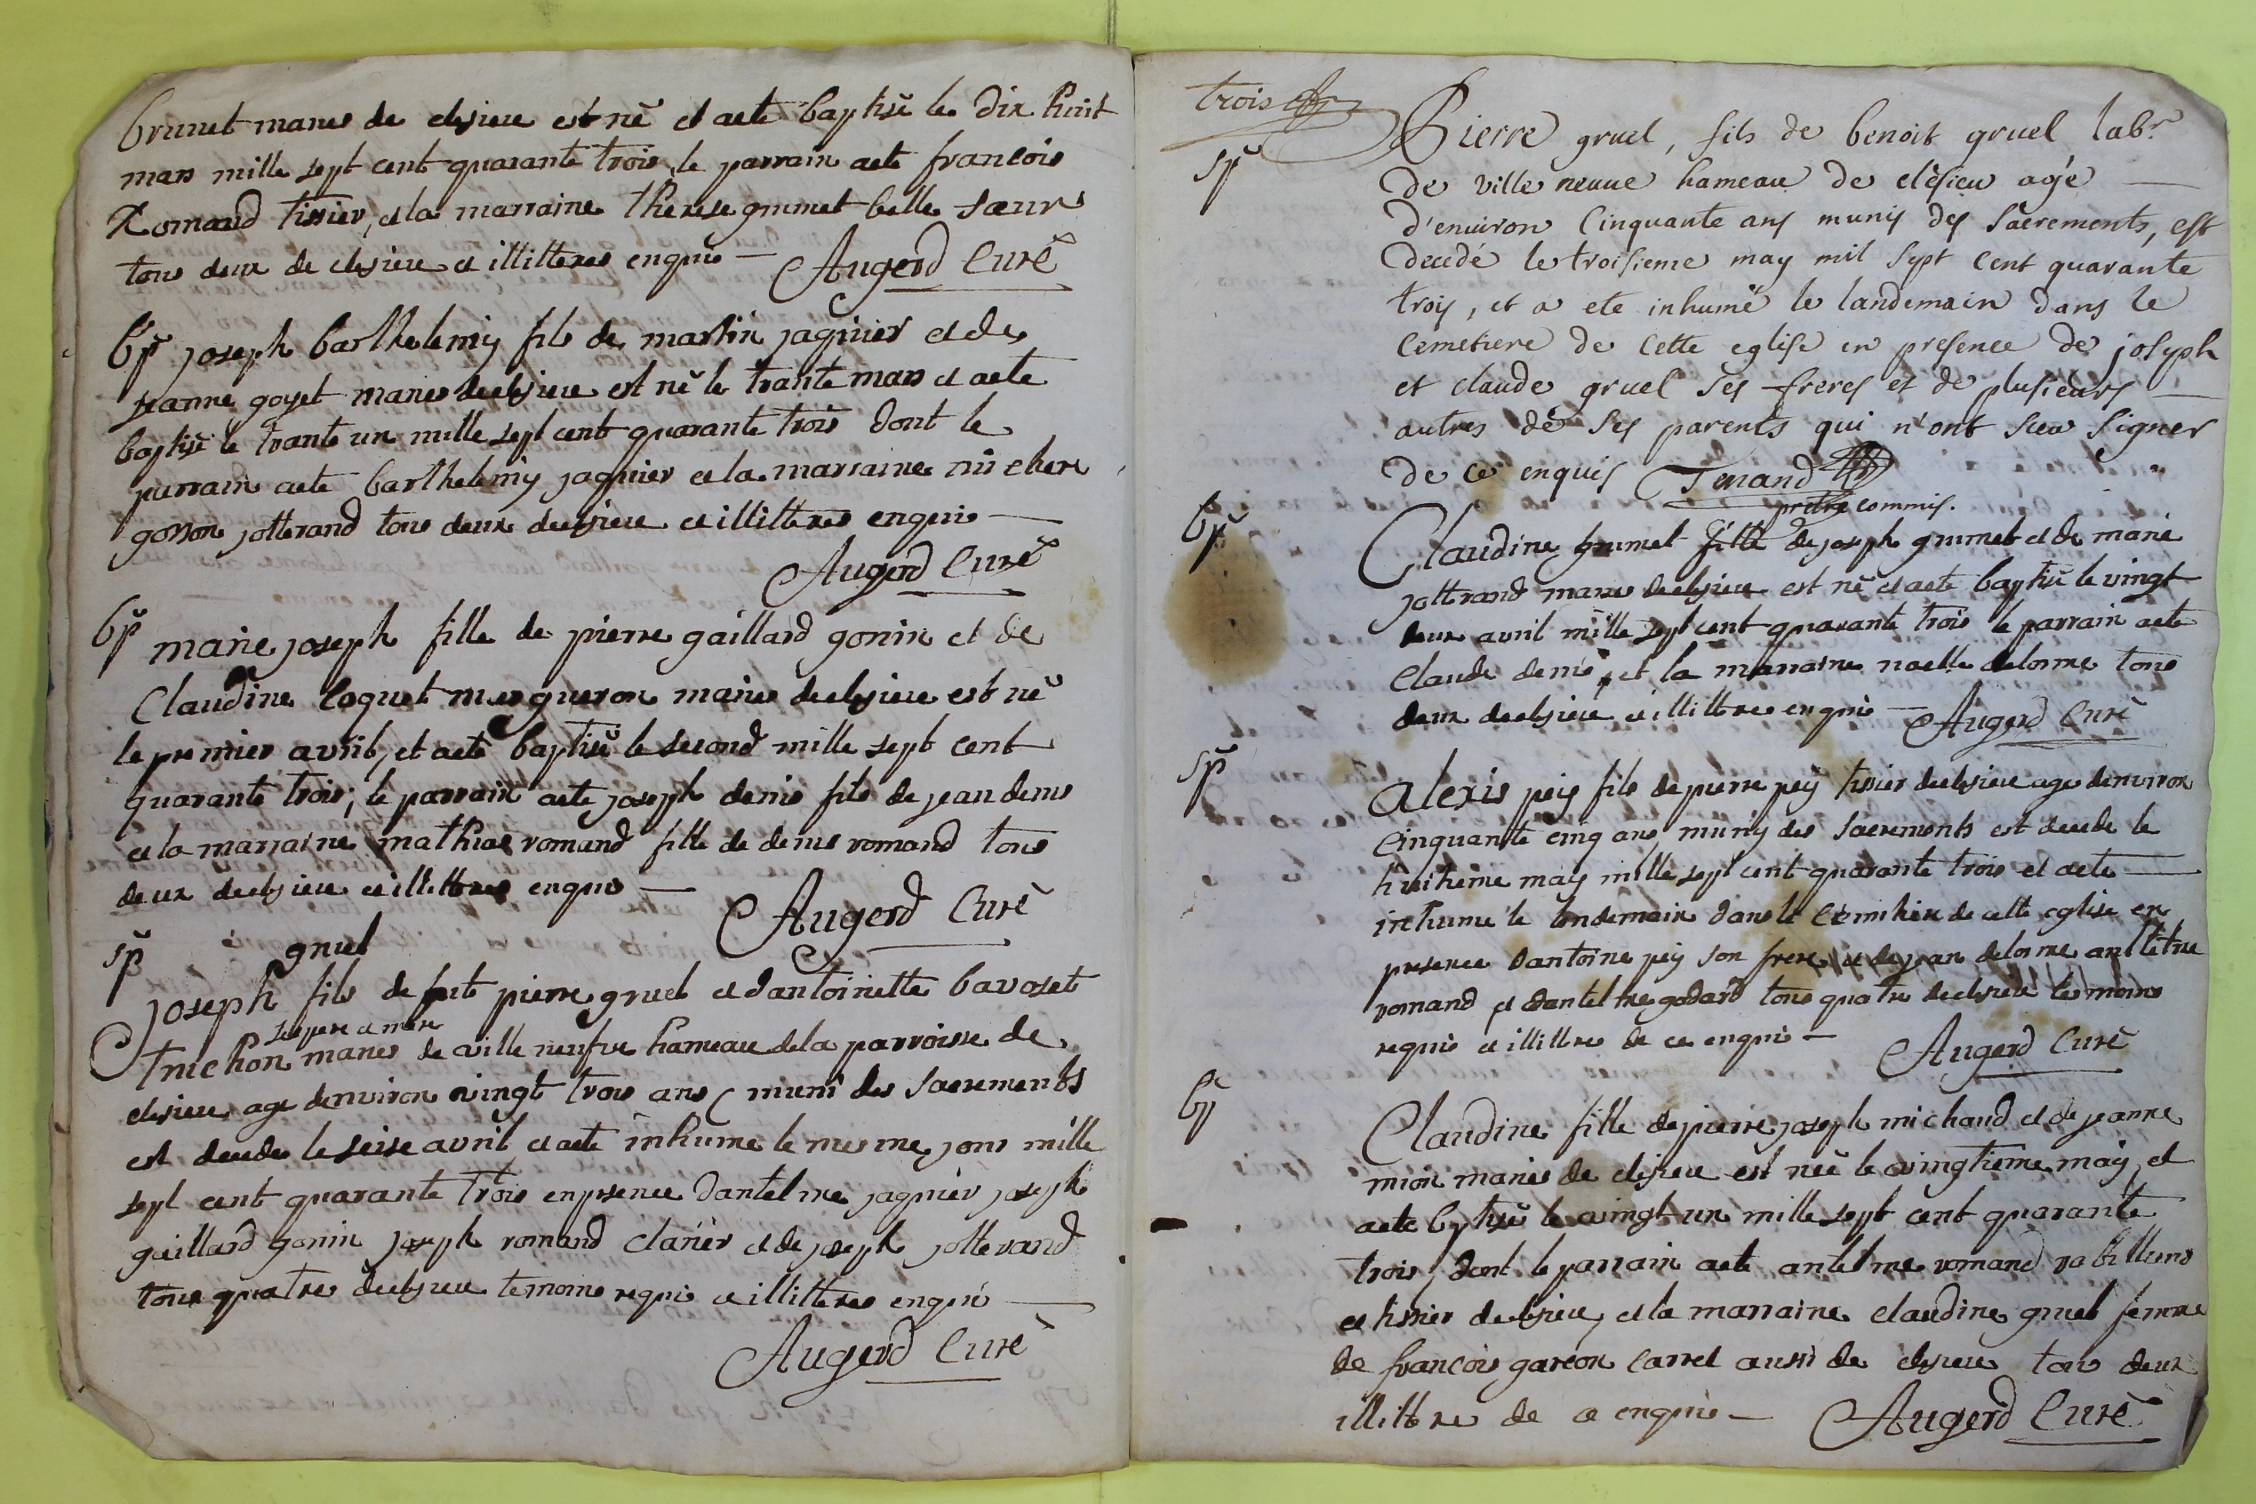 brunet mariés de clesieu est né et aeté baptisé le dix huit
mars mille sept cent quarante trois, le parrain aeté francois
Romand tissier, et la marraine therese grumet belle sœur
tous deux de clesieu et illitterés enquis —
Augerd Curé
bp̃ joseph barthelemy fils de martin jagnier et de
jeanne goyet mariés declesieu est né le trante mars et aeté
baptisé le trante un mille sept cent quarante trois dont le
parrain aeté barthelemy jagnier et la marraine
josserand tous deux declesieu et illitterés enquis —
Augerd Curé
bp̃ marie joseph fille de pierre gaillard gonin et de
Claudine coquet mugueron mariés declesieu est né
le premier avril, et aeté baptisé le second mille sept cent
quarante trois, le parrain aeté joseph denis fils de jean denis
et la marraine mathias romand fille de denis romand tous
deux declesieu et illitterés enquis —
Augerd Curé
sp̃ gruel
joseph fils de feut pierre gruel et dantoinette bavoset
ses pere a mere
truchon mariés de ville neufve hameau dela parroisse de
clesieu age denviron vingt trois ans muni des sacrements
est decede le seise avril et aeté inhumé le mesme jour mille
sept cent quarante trois enpresence dantelme jagnier joseph
gaillard gonin joseph romand clarier et de joseph jotterand
tous quatres declesieu temoins requis et illitterés enquis —
Augerd Curé
trois
sp̃
Pierre gruel, fils de benoit gruel labr.
de ville neuue hameau de clésieu agé —
d'enuiron Cinquante ans munis des Sacrements, est
decedé le troisieme may mil sept cent quarante
trois, et a eté inhumé le landemain dans le
Cemetiere de Cette eglise en presence de joseph
et claude gruel ses freres et de plusieurs —
autres de ses parents qui n'ont sceu signer
de ce enquis Tenand
pretre commis.
bp̃
Claudine grumet fille de joseph grumet et de marie
jotterand mariés declesieu est né et aeté baptisé le vingt
deux avril mille sept cent quarante trois le parrain aeté
Claude denis, et la marraine naelle delorme tous
deux declesieu et illitterés enquis —
Augerd Curé
sp̃
alexis pey fils de pierre pey tissier declesieu age denviron
Cinquante cinq ans muny des sacrements est decede le
huitieme may mille sept cent quarante trois et aeté —
inhumé le londemain dans le Cemitiere de cette eglise en
presence dantoine pey son frere et de jean delorme
romand et dantelme godard tous quatre declesieu temoins
requis et illittres de ce enquis —
Augerd Curé
bp̃
Claudine fille de pierre joseph michaud et de jeanne
mion mariés de clesieu est née le vingtieme may, et
aeté bptisé le vingt un mille sept cent quarante
trois, dont le parrain aeté antelme romand
et tissier declesieu, et la marraine Claudine gruel femme
de francois garcon carrel aussi de clesieu tous deux
illittere de ce enquis —
Augerd Curé